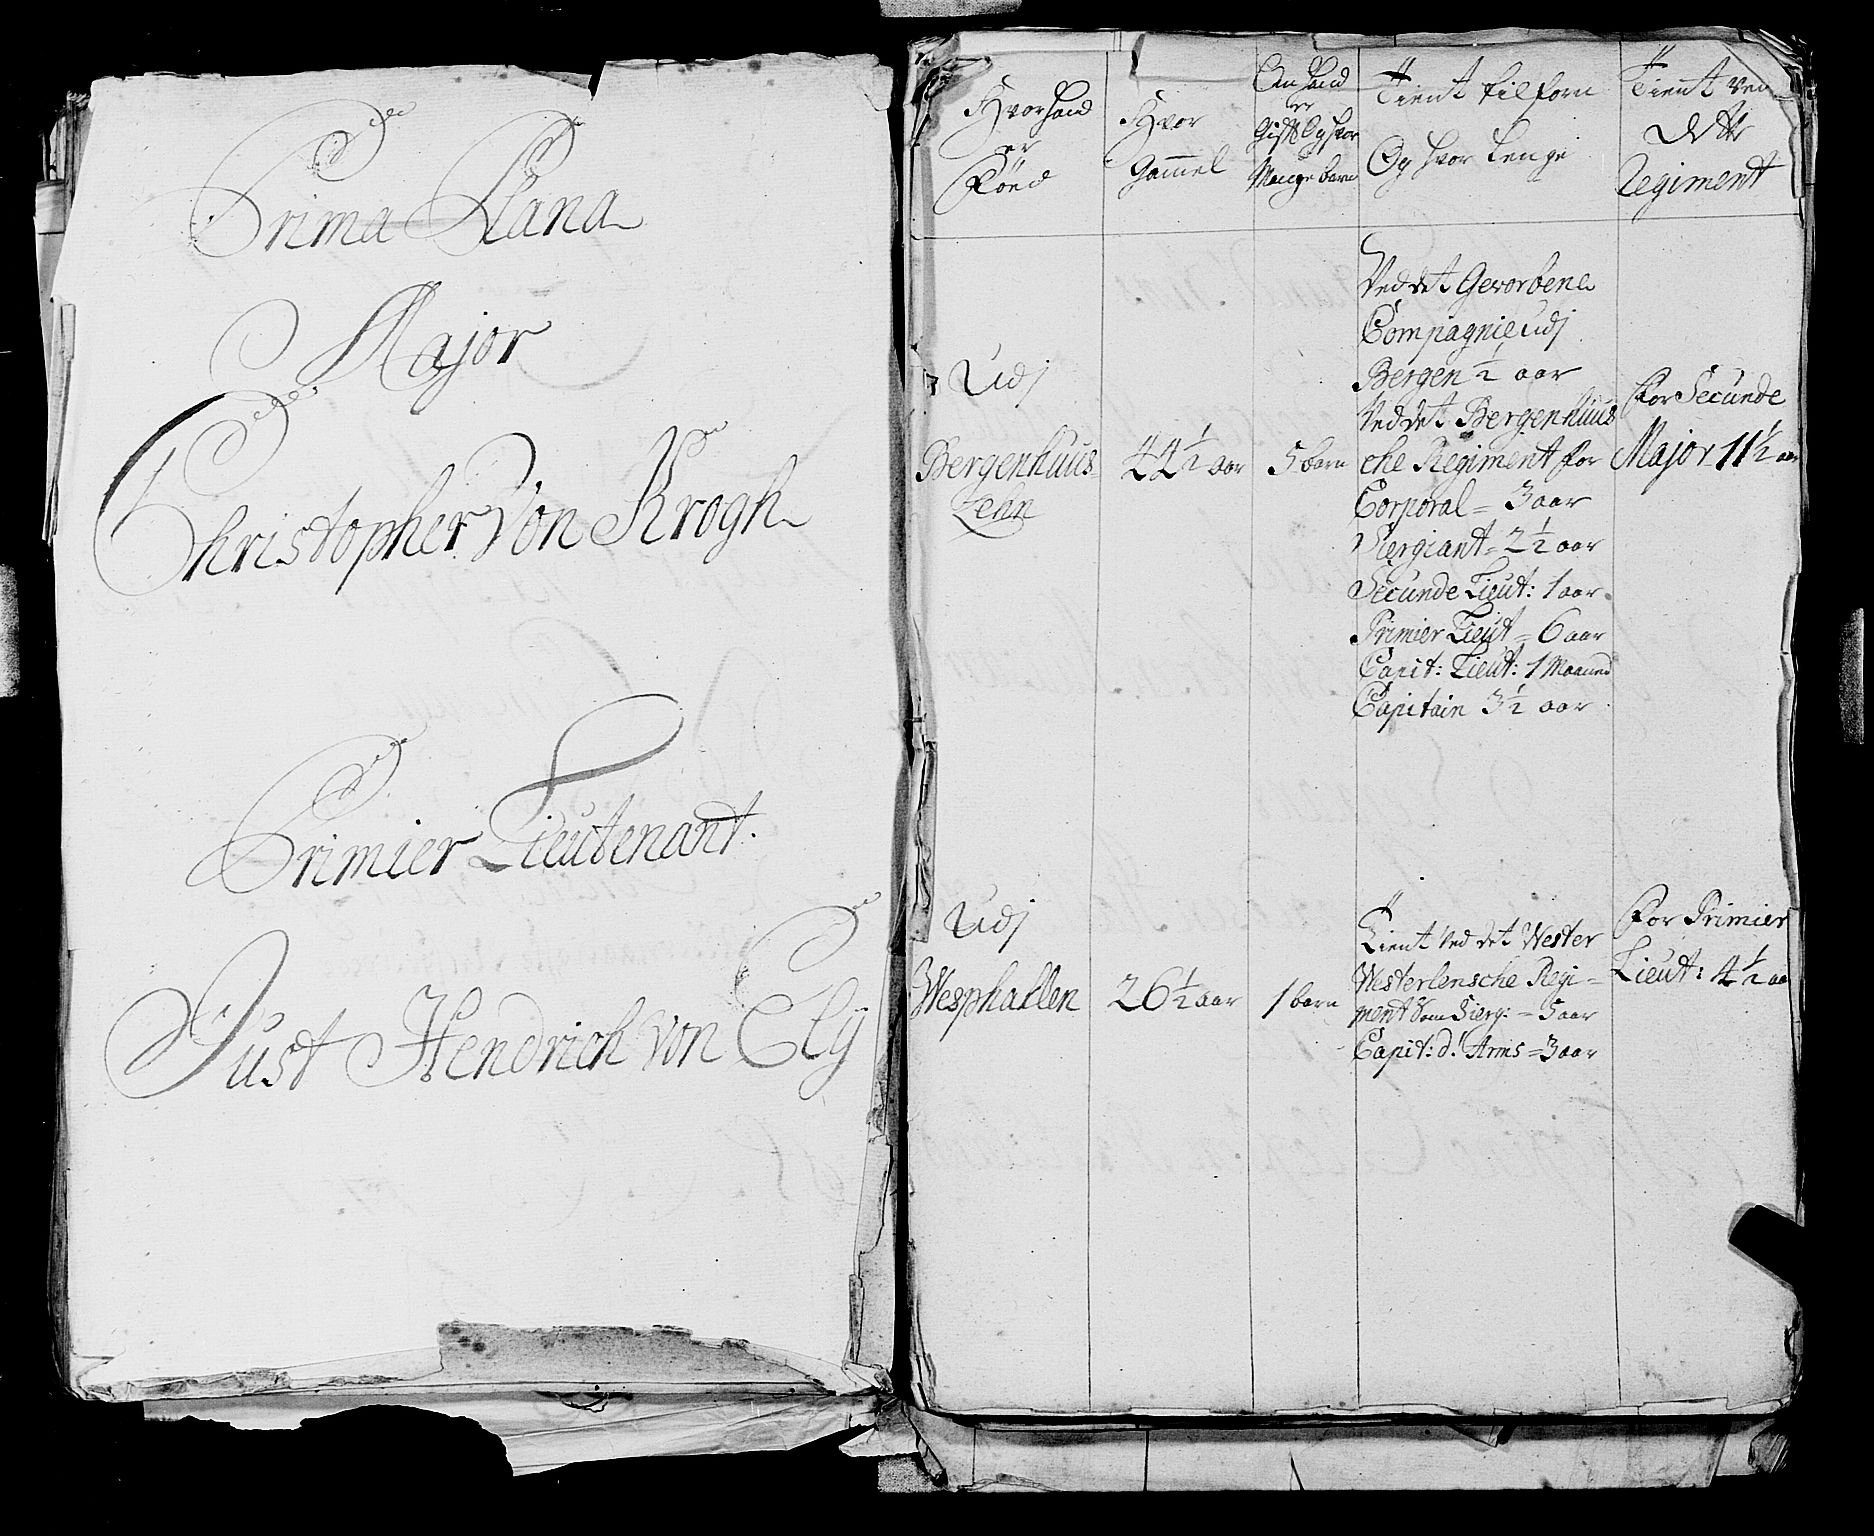 Prima Plana
Major
Christopher Von Krogh
Primier Lieutenant
Just Hendrich von Ely
Hvor hand
er
Föed
Hvor
Gammel
Om hand
er
Gift Og hvor
Mange barn
Tient tilforn
Og hvor lenge
Tient ved
Dette
Regiment
Udj
Bergenhuus
Lehn
44½ aar
5 barn
Ved det Gevorbene
Compagnie udj
Bergen ½ aar
Ved det Bergenhuus
che Regiment for
Corporal = 3 aar
Siergiant = 2½ aar
Secunde Lieut: 1 aar
Primier Lieut = 6 aar
Capit: Lieut: 1 Maaned
Capitain 3½ aar
For Secunde
Major 11½ aar
Udj
Wesphahlen
26½ aar
1 barn
Tient Ved det Wester
Westerlensche Regi=
ment Som Sierg: = 5 aar
Capit: d' Arms = 3 aar
For Primier
Lieut: 4½ aa